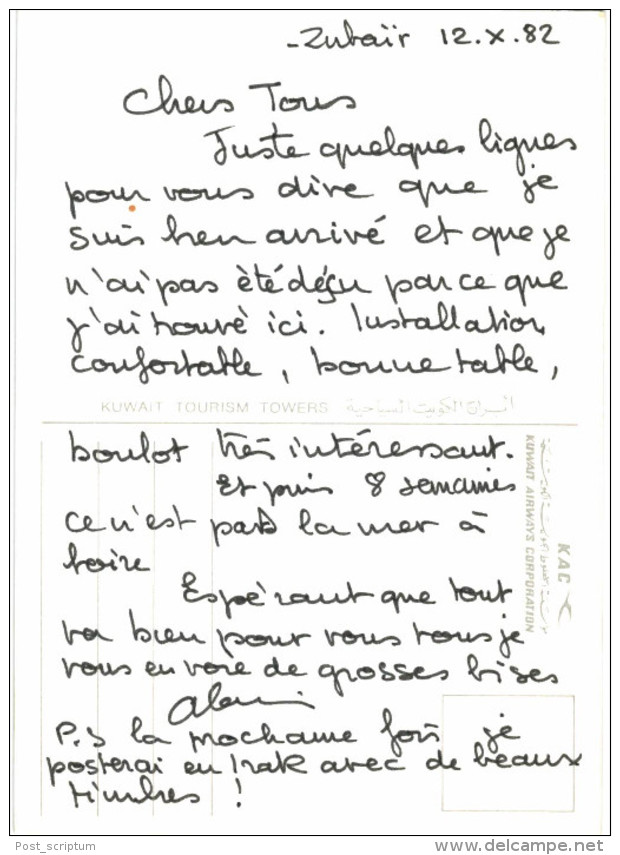 - Zubaïr 12.X.82
Chers Tous
Juste quelques lignes
pour vous dire que je
suis bien arrivé et que je
n'ai pas été déçu par ce que
j'ai trouvé ici. Installation
confortable, bonne table,
KUWAIT TOURISM TOWERS ابراج الكويت السياحية
boulot très intéressant.
Et puis 8 semaines
ce n'est pas la mer à
boire
Espérant que tout
va bien pour vous tous je
vous envoie de grosses bises
Alain
P.S la prochaine fois je
posterai en Irak avec de beaux
timbres !
KUWAIT AIRWAYS CORPORATION
KAC
Post_scriptum
delcampe.net